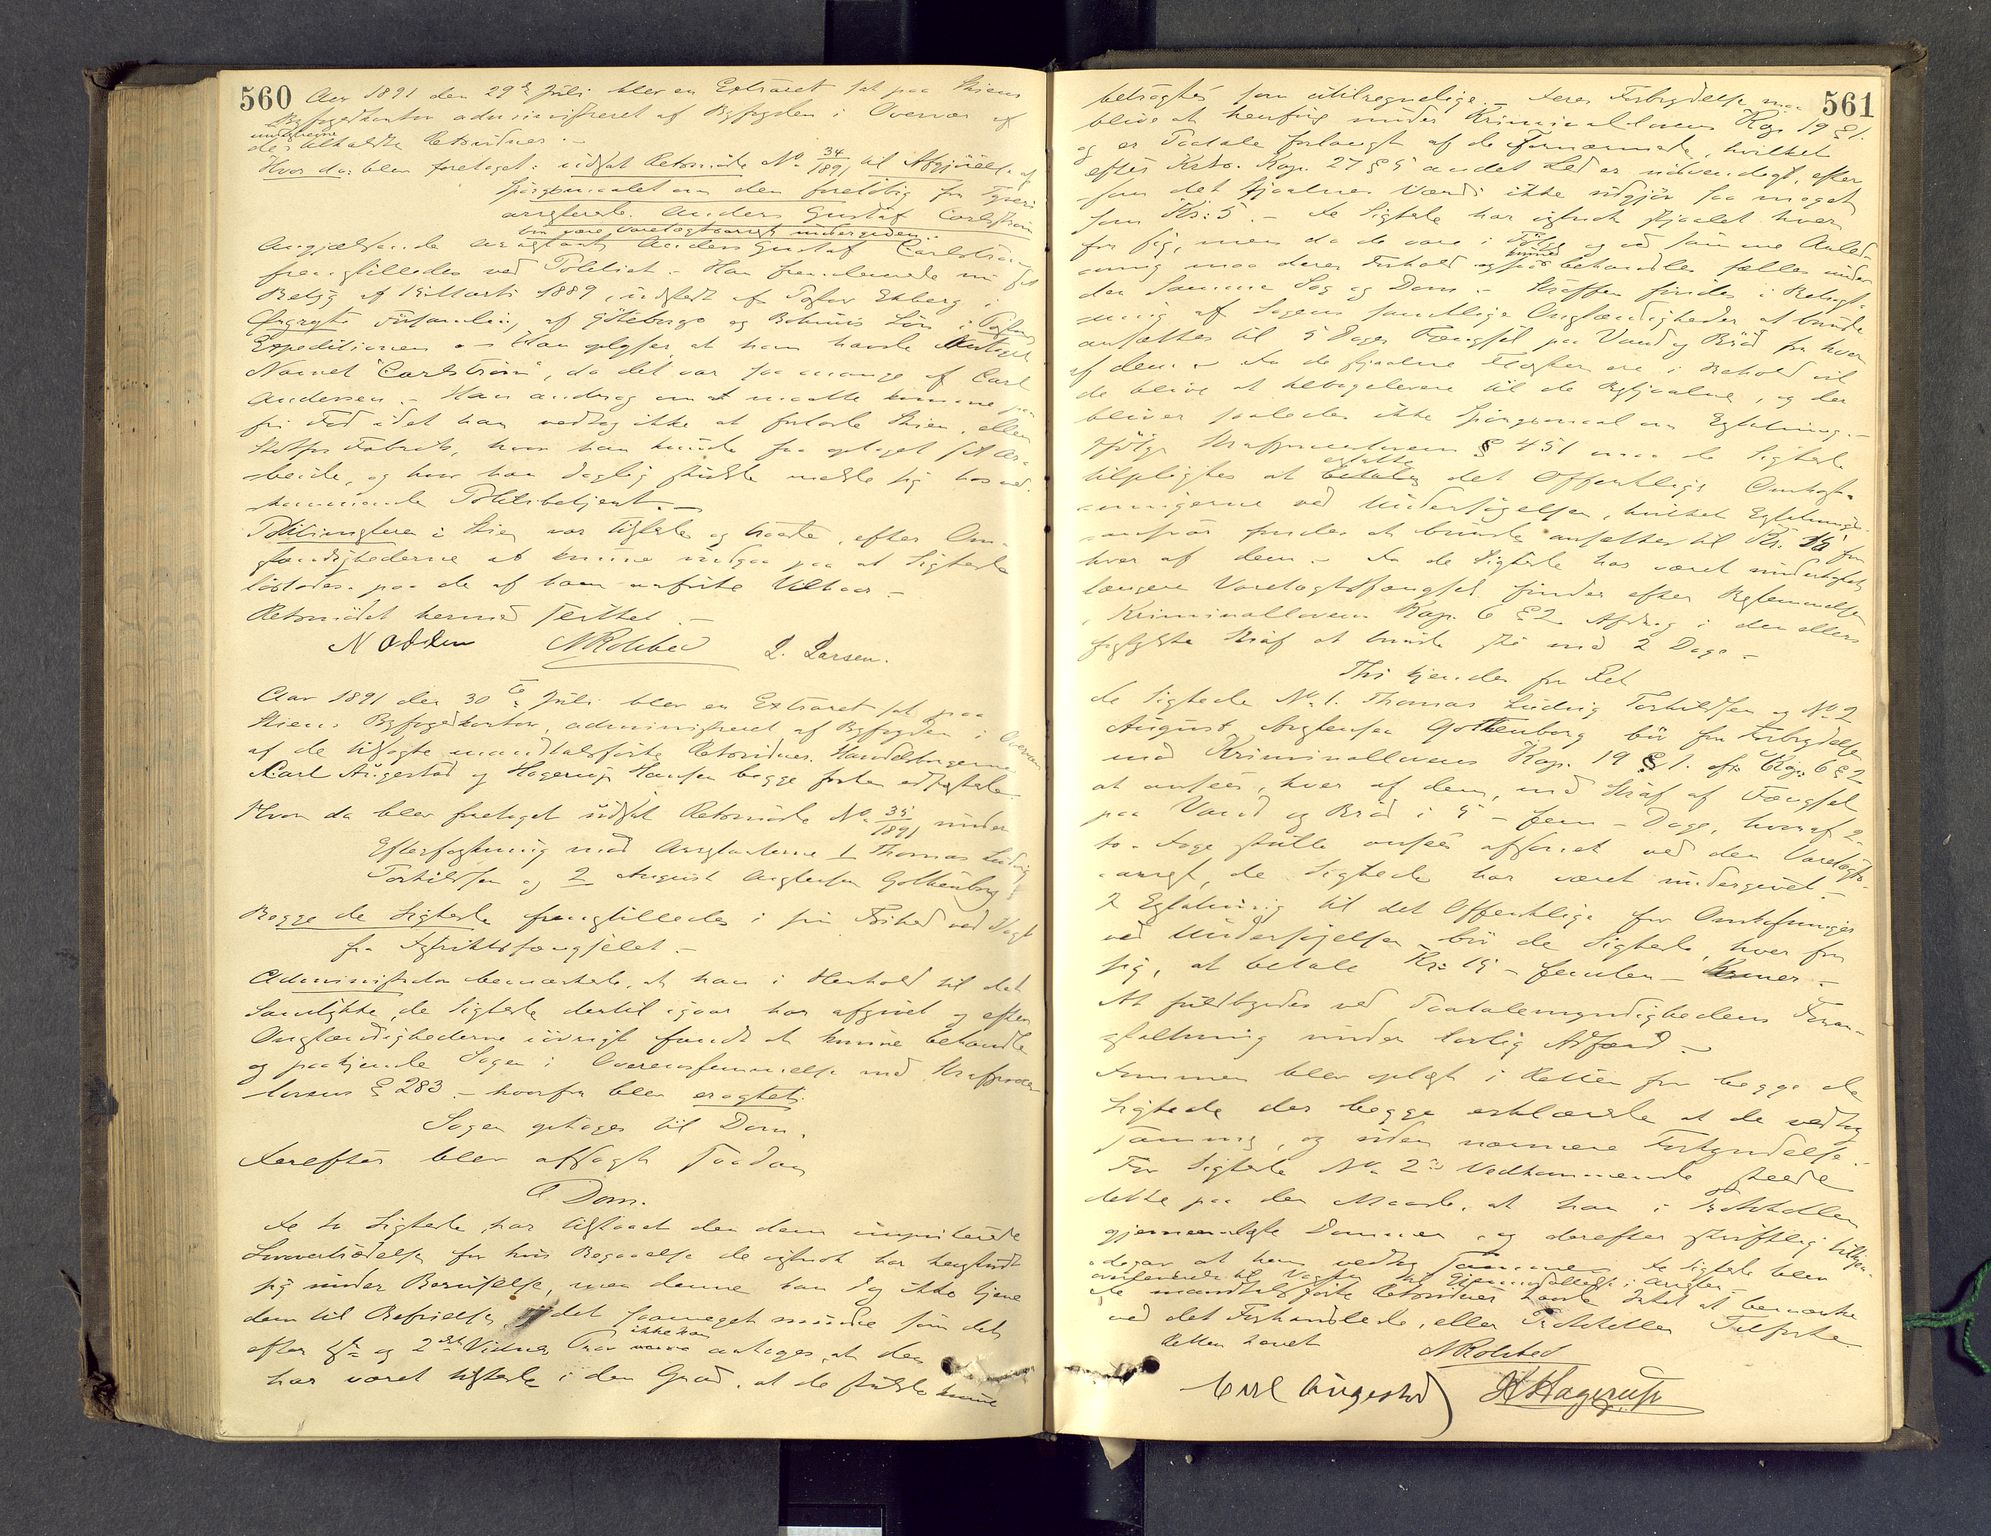 560
Aar 1891 den 29de Juli blev en Extraret sat paa Skiens
Byfogedkontor administreret af Byfogden i Overvær af
undertegnede
de tilkaldte Retsvidner. -
Hvor da blev foretaget: udsat Retsmøde No 34/1891 til Afgjørelse af
Spørgsmaalet om den foreløbig for Tyveri
arresterede Anders Gustaf Carlström
bør være Varetægtsarrest undergiven.
Angjældende arrestant Anders Gustaf Carlström
fremstilledes ved Politiet. - Han fremleverede nu sit
Betyg af 13 Marts 1889, udstedt af Pastor Ekberg i
Örgryte Församling af Göteborgs og Bohus Län i Pastors
Expeditionen. - Han oplyser at han havde antaget
Navnet "Carlström", da det var saa mange af Carl
Andersen. - Han androg om at maatte komme paa
fri Fod idet han vedtog ikke at forlade Skien, eller
Fabrik, hvor han kunde faa optaget sit Ar-
beide, og hvor han daglig skulde melde sig hos ved-
kommende Politibetjent. -
Politimesteren i Skien var tilstede og troede, efter Om-
stændighederne at kunne indgaa paa at Sigtede
løslades paa de af ham anførte Vilkaar. -
Retsmødet hermed sluttet. -
N Odden NRolsted L. Larsen.
Aar 1891 den 30te Juli blev en Extraret sat paa
Skiens Byfogedkontor administreret af Byfogden i Overvær
af de tilsagte mandtalsførte Retsvidner Handelsborgerne
Carl Augestad og Hagerup Hansen begge forhen edfæstede.
Hvor da blev foretaget udsat Retsmøde No 35/1891 under
Efterforskning mod Arrestanterne 1 Thomas Ludvig
Torkildsen og 2 August Anglensen Gothenborg
Begge de Sigtede fremstilledes i sin Frihed ved Vagt
fra Distriktsfængslet. -
Administrator bemærkede, at han i Henhold til det
Samtykke, de Sigtede dertil igaar har afgivet og efter
Omstændighederne iøvrigt fandt at kunne behandle
og paakjende Sagen i Overensstemmelse med Straffeproces-
lovens § 283. - hvorfor blev eragtet:
Sagen optages til Dom.
Derefter blev afsagt saadan
Dom.
De to Sigtede har tilstaaet den dem imputerede
Lovovertrædelse for hvis Begaaelse de egentlig har
sig under Beruselse, men denne kan dog ikke tjene
dem til Befrielse, idet saameget mindre som det
efter 1ste og 2det Vidnes Prov ikke kan antages, at den
har været tilstede i den Grad, at de skulde kunne
561
betragtes som utilregnelige. - Deres Forbrydelse maa
blive at henføre under Kriminallovens Kap. 19 § 1.
og er Paatale forlangt af de Fornærmede, hvilket
efter Krlo. Kap. 27 § 5 andet Led er nødvendigt, efter-
som det Stjaalnes Værdi ikke udgjør saa meget
som Kr: 5. - De Sigtede har stjaalet hver
for sig, men da de vare i Følge og ved samme Anled-
ning maa deres Forhold kunne behandles fælles under
den samme Sag og Dom. - Straffen findes i Betragt-
ning af Sagens samtlige Omstændigheder at burde
ansættes til 5 Dages Fængsel paa Vand og Brød for hver
af dem. - Da de stjaalne Flasker ere i Behold vil
de blive at tilbagelevere til de Bestjaalne, og der
bliver saaledes ikke Spørgsmaal om Erstatning. -
Ifølge Straffeproceslovens § 451 maa de Sigtede
tilpligtes at erstatte det Offentlige Omkost-
ningerne ved Undersøgelsen, hvilket Erstatnings-
ansvar findes at burde ansættes til Kr. 15 for
hver af dem. - Da de Sigtede har været undergivet
længere Varetægtsfængsel finder efter Bestemmelsen
i Kriminallovens Kap. 6 § 2 Afdrag i den ellers
forskyldte Straf at burde ske med 2 Dage. -
Thi kjendes for Ret
De Sigtede No 1. Thomas Ludvig Torkildsen og No 2
August Anglensen Gothenborg bør for Forbrydelse
mod Kriminallovens Kap. 19 § 1. cfr Kap. 6 § 2
at ansees, hver af dem, med Straf af Fængsel
paa Vand og Brød i 5 - fem - Dage, hvoraf 2
to - Dage skulle ansees afsonet ved den Varetægts-
arrest, de Sigtede har været undergivet. -
I Erstatning til det Offentlige for Omkostninger
ved Undersøgelsen bør de Sigtede, hver for
sig, at betale Kr: 15 - femten - Kroner. -
At fuldbyrdes ved Paatalemyndighedens Foran-
staltning under lovlig Adfærd. -
Dommen blev oplæst i Retten for begge de
Sigtede der begge erklærede at de vedtog
samme, og uden nærmere Forkyndelse. -
For Sigtede No 2s Vedkommende skeede
dette paa den Maade, at han i Protokollen
gjennemlæste Dommen og derefter skriftlig tilkjen-
degav at han vedtog samme. De Sigtede blev
overleverede til Vagten til Gjenindsættelse i Arresten.
De mandtalsførte Retsvidner havde Intet at bemærke
ved det Forhandlede, eller Protokollen Tilførte
Retten hævet NRolsted
Carl Augestad H Hagerup